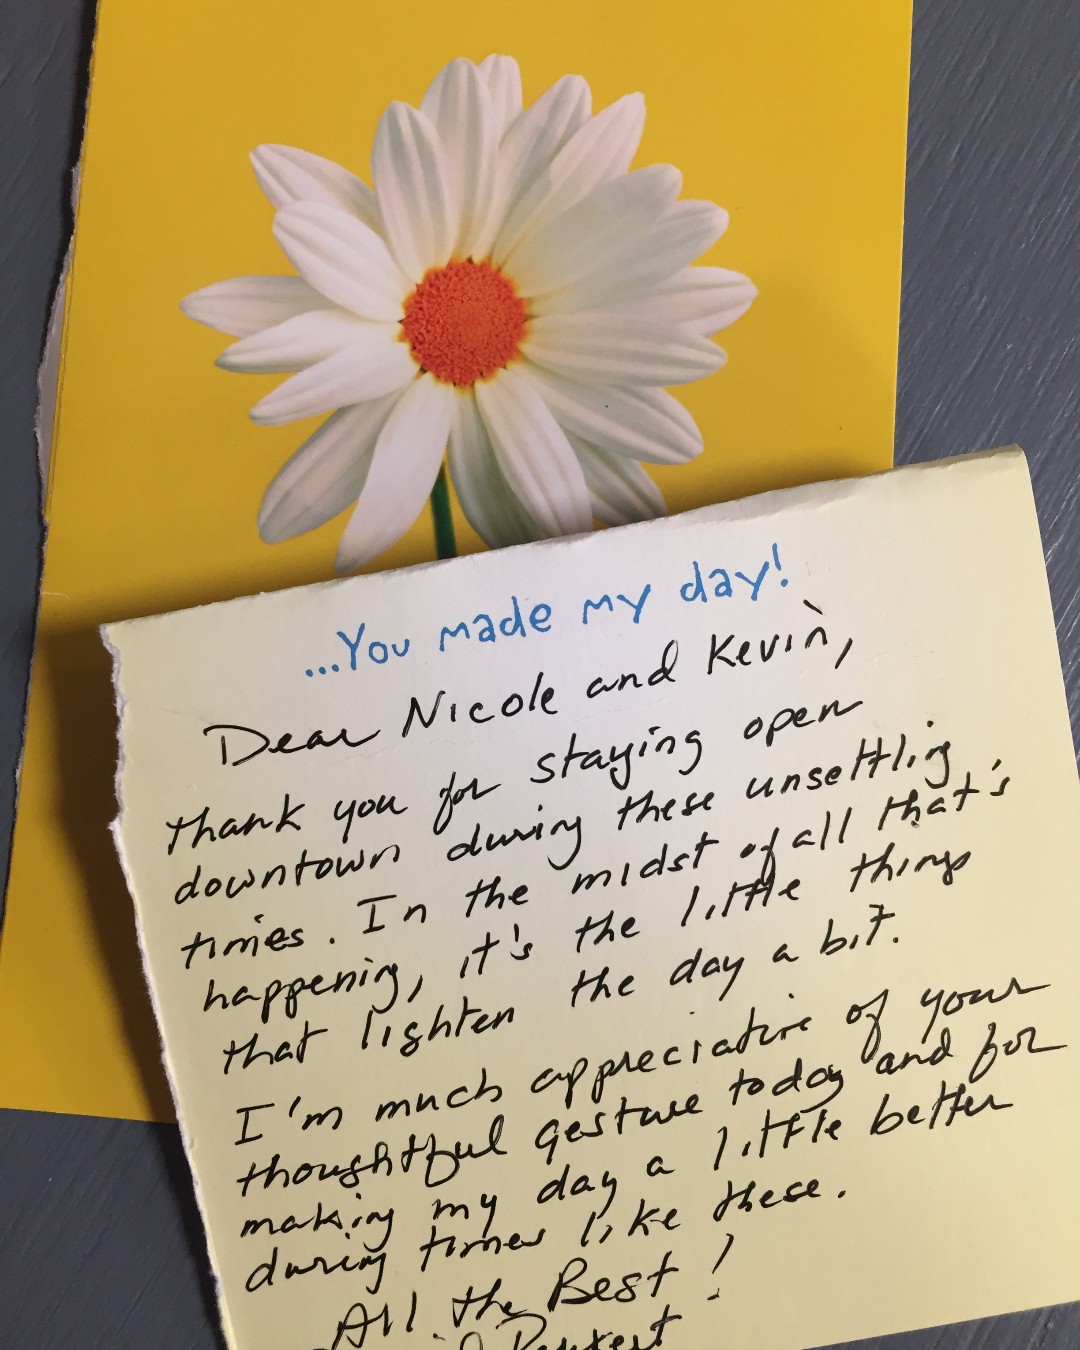 ...You made my day!
Dear Nicole and Kevin,
thank you for staying open
downtown during these unsettling
times. In the midst of all that's
happening, it's the little things
that lighten the day a bit.
I'm much appreciative of your
thoughtful gesture today and for
making my day a little better
during times like these.
All the Best!